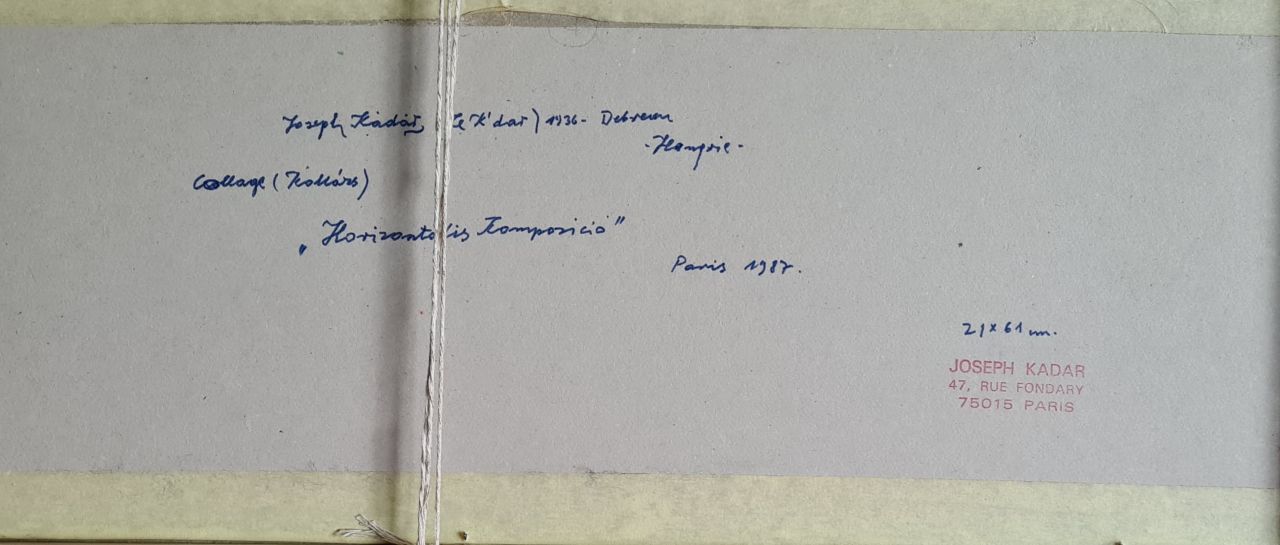 Joseph Kádár, K'dar) 1936- Debrecen
-Hongrie-
Collage (Kollázs)
„Horizontális Kompozició"
Paris 1987.
21 x 61 cm.
JOSEPH KADAR
47, RUE FONDARY
75015 PARIS